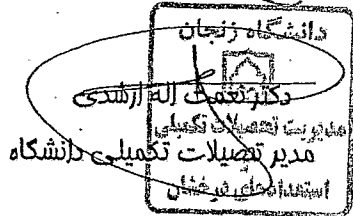 دانشگاه زنجان
دکتر نعمت اله ارشدی
مدیریت تحصیلات تکمیلی
مدیر تحصیلات تکمیلی دانشگاه
و
استعدادهای درخشان